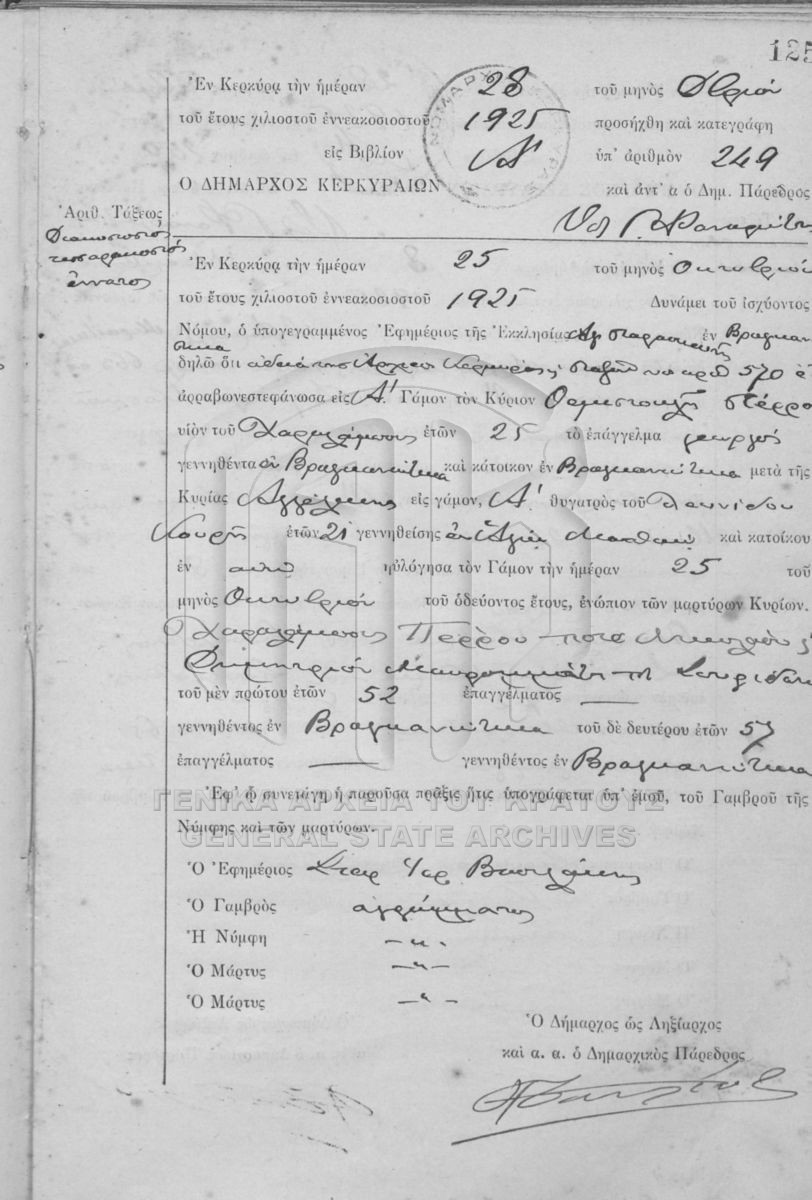 125
Ἐν Κερκύρᾳ τὴν ἡμέραν 28 τοῦ μηνὸς
τοῦ ἔτους χιλιοστοῦ ἐννεακοσιοστοῦ 1925 προσήχθη καὶ κατεγράφη
εἰς Βιβλίον Α' ὑπ' ἀριθμὸν 249
Ο ΔΗΜΑΡΧΟΣ ΚΕΡΚΥΡΑΙΩΝ καὶ ἀντ' α ὁ Δημ. Πάρεδρος
Ἀριθ. Τάξεως
Διακοσιοστός
τεσσαρακοστός
ἔννατος
Ἐν Κερκύρᾳ τὴν ἡμέραν 25 τοῦ μηνὸς Οκτωβρίου
τοῦ ἔτους χιλιοστοῦ ἐννεακοσιοστοῦ 1925 Δυνάμει τοῦ ἰσχύοντος
Νόμου, ὁ ὑπογεγραμμένος Ἐφημέριος τῆς Ἐκκλησίας Αγ Παρασκευῆς ἐν Βραγκανιώτικα
δηλῶ ὅτι 570
ἀρραβωνεστεφάνωσα εἰς Α' Γάμον τὸν Κύριον Θεμιστοκλῆ Πέρρο
υἱὸν τοῦ Χαραλάμπους ἐτῶν 25 τὸ ἐπάγγελμα γεωργός
γεννηθέντα ἐν Βραγκανιώτικα καὶ κάτοικον ἐν Βραγκανιώτικα μετὰ τῆς
Κυρίας Ἀγγελικῆς εἰς γάμον, Α' θυγατρὸς τοῦ Λεωνίδου
Κουρῆ ἐτῶν 21 γεννηθείσης ἐν Ἁγίῳ Ματθαίῳ καὶ κατοίκου
ἐν ηὐλόγησα τὸν Γάμον τὴν ἡμέραν 25 τοῦ
μηνὸς Οκτωβρίου τοῦ ὁδεύοντος ἔτους, ἐνώπιον τῶν μαρτύρων Κυρίων.
Χαραλάμπους Πέρρου ποτὲ Νικολάου
Δημητρίου Μαυροκεφάλου τοῦ Σπυρίδωνος
τοῦ μὲν πρώτου ἐτῶν 52 ἐπαγγέλματος —
γεννηθέντος ἐν Βραγκανιώτικα τοῦ δὲ δευτέρου ἐτῶν 57
ἐπαγγέλματος — γεννηθέντος ἐν Βραγκανιώτικα
Ἐφ' ᾧ συνετάγη ἡ παροῦσα πρᾶξις ἥτις ὑπογράφεται ὑπ' ἐμοῦ, τοῦ Γαμβροῦ τῆς
ΓΕΝΙΚΑ ΑΡΧΕΙΑ ΤΟΥ ΚΡΑΤΟΥΣ
Νύμφης καὶ τῶν μαρτύρων.
GENERAL STATE ARCHIVES
Ὁ Ἐφημέριος
Ὁ Γαμβρὸς αγράμματος
Ἡ Νύμφη — " -
Ὁ Μάρτυς — " —
Ὁ Μάρτυς — " —
Ὁ Δήμαρχος ὡς Ληξίαρχος
καὶ α. α. ὁ Δημαρχικὸς Πάρεδρος